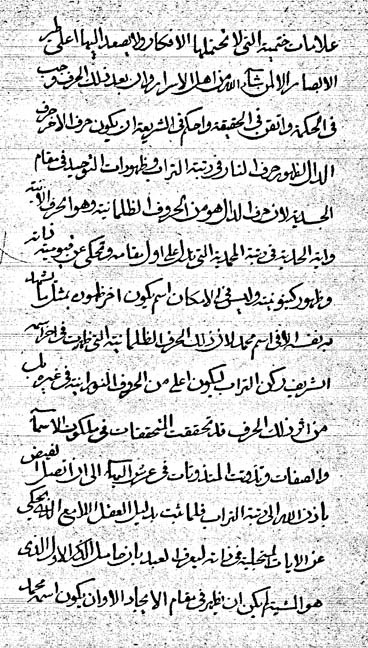 علامات ختمية التي لا تحتملها الافكار ولا يصعد اليها اعلى طير
الابصار الا لمن شاء الله من اهل الاسرار وان بعد ذلك الحرف وجب
في الحكمة واتقن في الحقيقة واحكم في الشريعة ان يكون حرف الاخر حرف
الدال لظهور حرف النار في رتبة التراب وظهورات التوحيد في مقام
الجسدية لان حرف الدال هو من الحروف الظلمانية وهو الحرف
واية الجلية في رتبة المحمدية التي تدل على اول مقامه وتحكي عن قيومية
وظهور كينونيته وليس في الامكان اسم يكون اخر ظهوره بمثل
به نفسه الا في اسم محمد لان ذلك الحرف الظلمانية التي ظهرت في اخر اسمه
الشريف ركن التراب ليكون اعلى من الحروف النورانية في غيره
من اثر ذلك الحرف قد تحققت المتحققات في ملكوت الاسماء
والصفات وتذوتت المتذوتات في عرش الى ان اتصل الفيض
باذن الله الى رتبة التراب فلما ثبت بدليل العقل الذي يحكي
عن الايات المتجلية في ذاته ليعرف العبد بان حامل الاول الذي
هو المشية لم يكن ان يظهر في مقام الايجاد الا وان يكون اسمه محمد